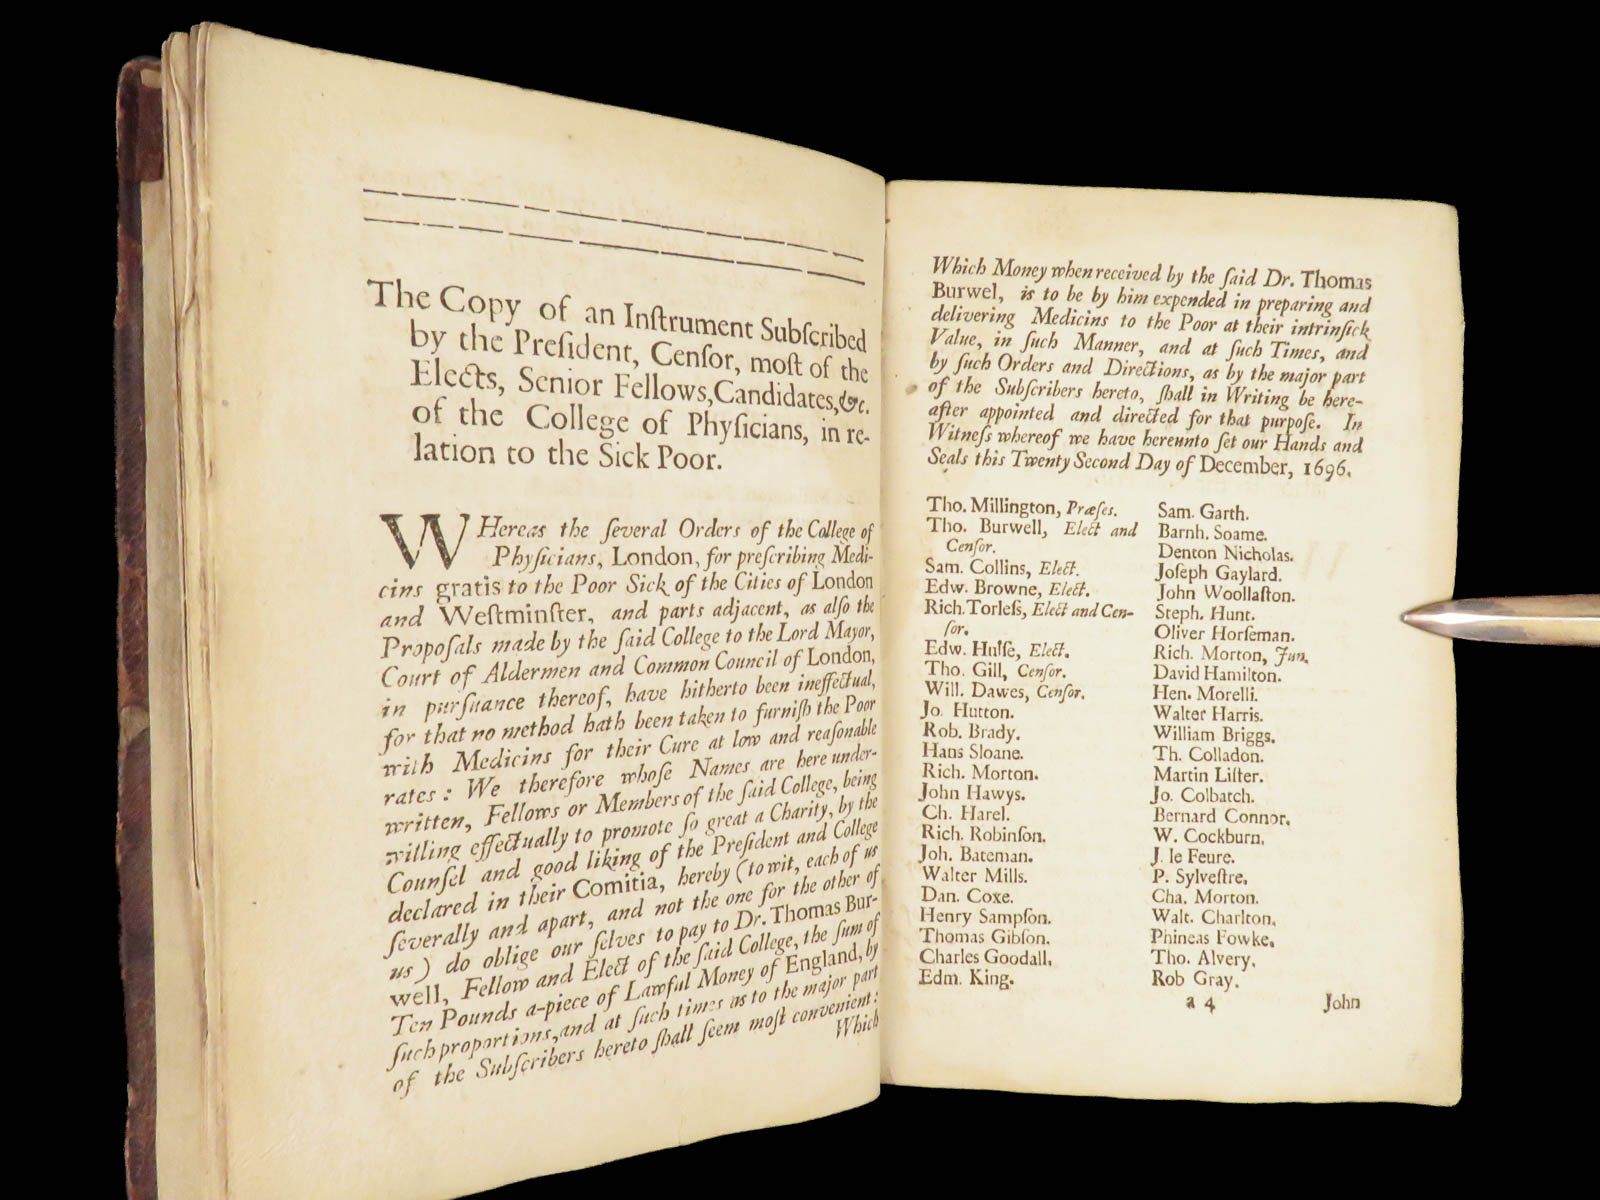 The Copy of an Inſtrument Subſcribed
by the Preſident, Cenſor, moſt of the
Elects, Senior Fellows, Candidates, &c.
of the College of Phyſicians, in re-
lation to the Sick Poor.
WHereas the ſeveral Orders of the College of
Phyſicians, London, for preſcribing Medi-
cins gratis to the Poor Sick of the Cities of London
and Weſtminſter, and parts adjacent, as alſo the
Propoſals made by the ſaid College to the Lord Mayor,
Court of Aldermen and Common Council of London,
in purſuance thereof, have hitherto been ineffectual,
for that no method hath been taken to furniſh the Poor
with Medicins for their Cure at low and reaſonable
rates: We therefore whoſe Names are here under-
written, Fellows or Members of the ſaid College, being
willing effectually to promote ſo great a Charity, by the
Counſel and good liking of the Preſident and College
declared in their Comitia, hereby (to wit, each of us
ſeverally and apart, and not the one for the other of
us) do oblige our ſelves to pay to Dr. Thomas Bur-
well, Fellow and Elect of the ſaid College, the ſum of
Ten Pounds a-piece of Lawful Money of England, by
ſuch proportions, and at ſuch times as to the major part
of the Subſcribers hereto ſhall ſeem moſt convenient:
Which
Which Money when received by the ſaid Dr. Thomas
Burwel, is to be by him expended in preparing and
delivering Medicins to the Poor at their intrinſick
Value, in ſuch Manner, and at ſuch Times, and
by ſuch Orders and Directions, as by the major part
of the Subſcribers hereto, ſhall in Writing be here-
after appointed and directed for that purpoſe. In
Witneſs whereof we have hereunto ſet our Hands and
Seals this Twenty Second Day of December, 1696.
Tho. Millington, Præſes.
Tho. Burwell, Elect and
Cenſor.
Sam. Collins, Elect.
Edw. Browne, Elect.
Rich. Torleſs, Elect and Cen-
ſor.
Edw. Hulſe, Elect.
Tho. Gill, Cenſor.
Will. Dawes, Cenſor.
Jo. Hutton.
Rob. Brady.
Hans Sloane.
Rich. Morton.
John Hawys.
Ch. Harel.
Rich. Robinſon.
Joh. Bateman.
Walter Mills.
Dan. Coxe.
Henry Sampſon.
Thomas Gibſon.
Charles Goodall.
Edm. King.
Sam. Garth.
Barnh. Soame.
Denton Nicholas.
Joſeph Gaylard.
John Woollaſton.
Steph. Hunt.
Oliver Horſeman.
Rich. Morton, Jun.
David Hamilton.
Hen. Morelli.
Walter Harris.
William Briggs.
Th. Colladon.
Martin Liſter.
Jo. Colbatch.
Bernard Connor.
W. Cockburn.
J. le Feure.
P. Sylveſtre.
Cha. Morton.
Walt. Charlton.
Phineas Fowke.
Tho. Alvery.
Rob Gray.
a 4
John